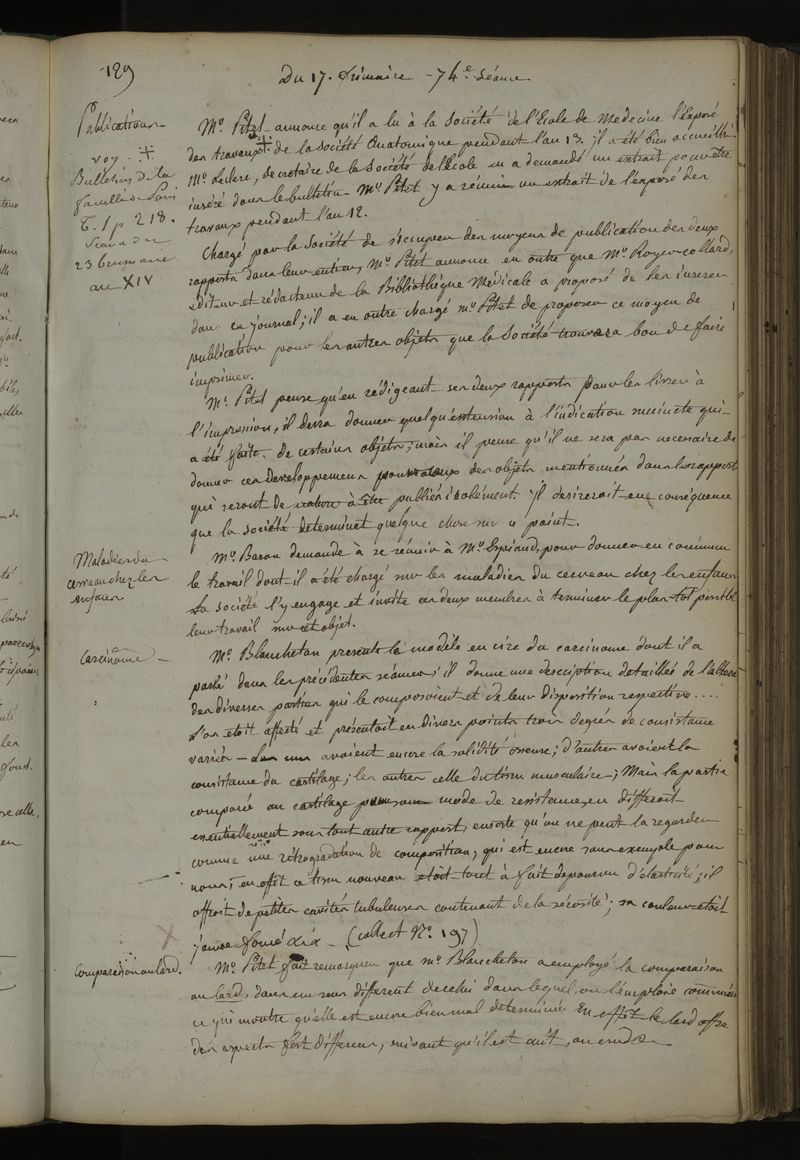 129
Du 17. frimaire - 74e. Séance
Publications
voy. ‡
Bulletin de la
faculté de Paris
T. 1 p 218.
Séance du
23 brumaire
an XIV
Mr. Petit annonce qu'il a lu à la Société de l'Ecole de Medecine l'Exposé
des travaux ‡ de la Société Anatomique pendant l'an 13. il a été bien accueilli.
Mr. leclerc, secretaire de la Société de l'école en a demandé un extrait pour être
inséré dans le bulletin. Mr. Petit y a réuni un extrait de l'exposé des
travaux pendant l'an 12.
Chargé par la Société de s'occuper des moyens de publication des deux
rapports dans leur entier, Mr. Petit annonce en outre que Mr. Royer-collard,
editeur et rédacteur de la Bibliothèque Médicale a proposé de les inserer
dans ce journal; il a en outre chargé mr. Petit de proposer ce moyen de
publication pour les autres objets que la Société trouvera bon de faire
imprimer.
Mr. Petit pense qu'en rédigeant ses deux rapports pour les livrer à
l'impression, il devra donner quelqu'extension à l'indication succincte qui
a été faite de certains objets; mais il pense qu'il ne sera pas necessaire de
donner ces developpemens pour ceux des objets mentionnés dans les rapports
qui seront de nature à être publiés isolément. Il desirerait en conséquence
que la société determinat quelque chose sur ce point.
Maladies du
cerveau chez les
enfans.
Mr. Baron demande à se réunir à Mr. pour donner en commun
le travail dont il a été chargé sur les maladies du cerveau chez les enfans
La société l'y engage et invite ces deux membres à terminer le plan tot possible
leur travail sur cet objet.
Carcinome -
Mr. Blancheton presente le modèle en cire du carcinome dont il a
parlé dans les précédentes séances; il donne une description detaillée de l'
des diverses parties qui le composoient et de leur disposition respective....
L'os etoit affecté et présentoit en divers points trois degrés de consistance
variés - les uns avoient encore la solidité osseuse; d'autres avoient la
consistance du cartilage; les autres celle du tissu musculaire -; Mais la partie
comparée au cartilage pour son mode de resistance, en différoit
essentiellement sous tout autre rapport, ensorte qu'on ne peut la regarder
comme une rétrogradation de composition, qui est encore sans exemple pour
nous; en effet ce tissu nouveau etoit tout à fait depourvu d'elasticité; il
offroit de petites cavités tubuleuses contenant de la sérosité; sa couleur etoit
jaune foncé - (collect No. 197)
Comparaison au lard.
Mr. Petit fait remarquer que mr. Blancheton a employé la comparaison
au lard, dans un sens different de celui dans lequel on l'emploie
ce qui montre qu'elle est encore bien mal determinée. En effet le lard offre
des aspects fort différens, suivant qu'il est cuit, ou crud